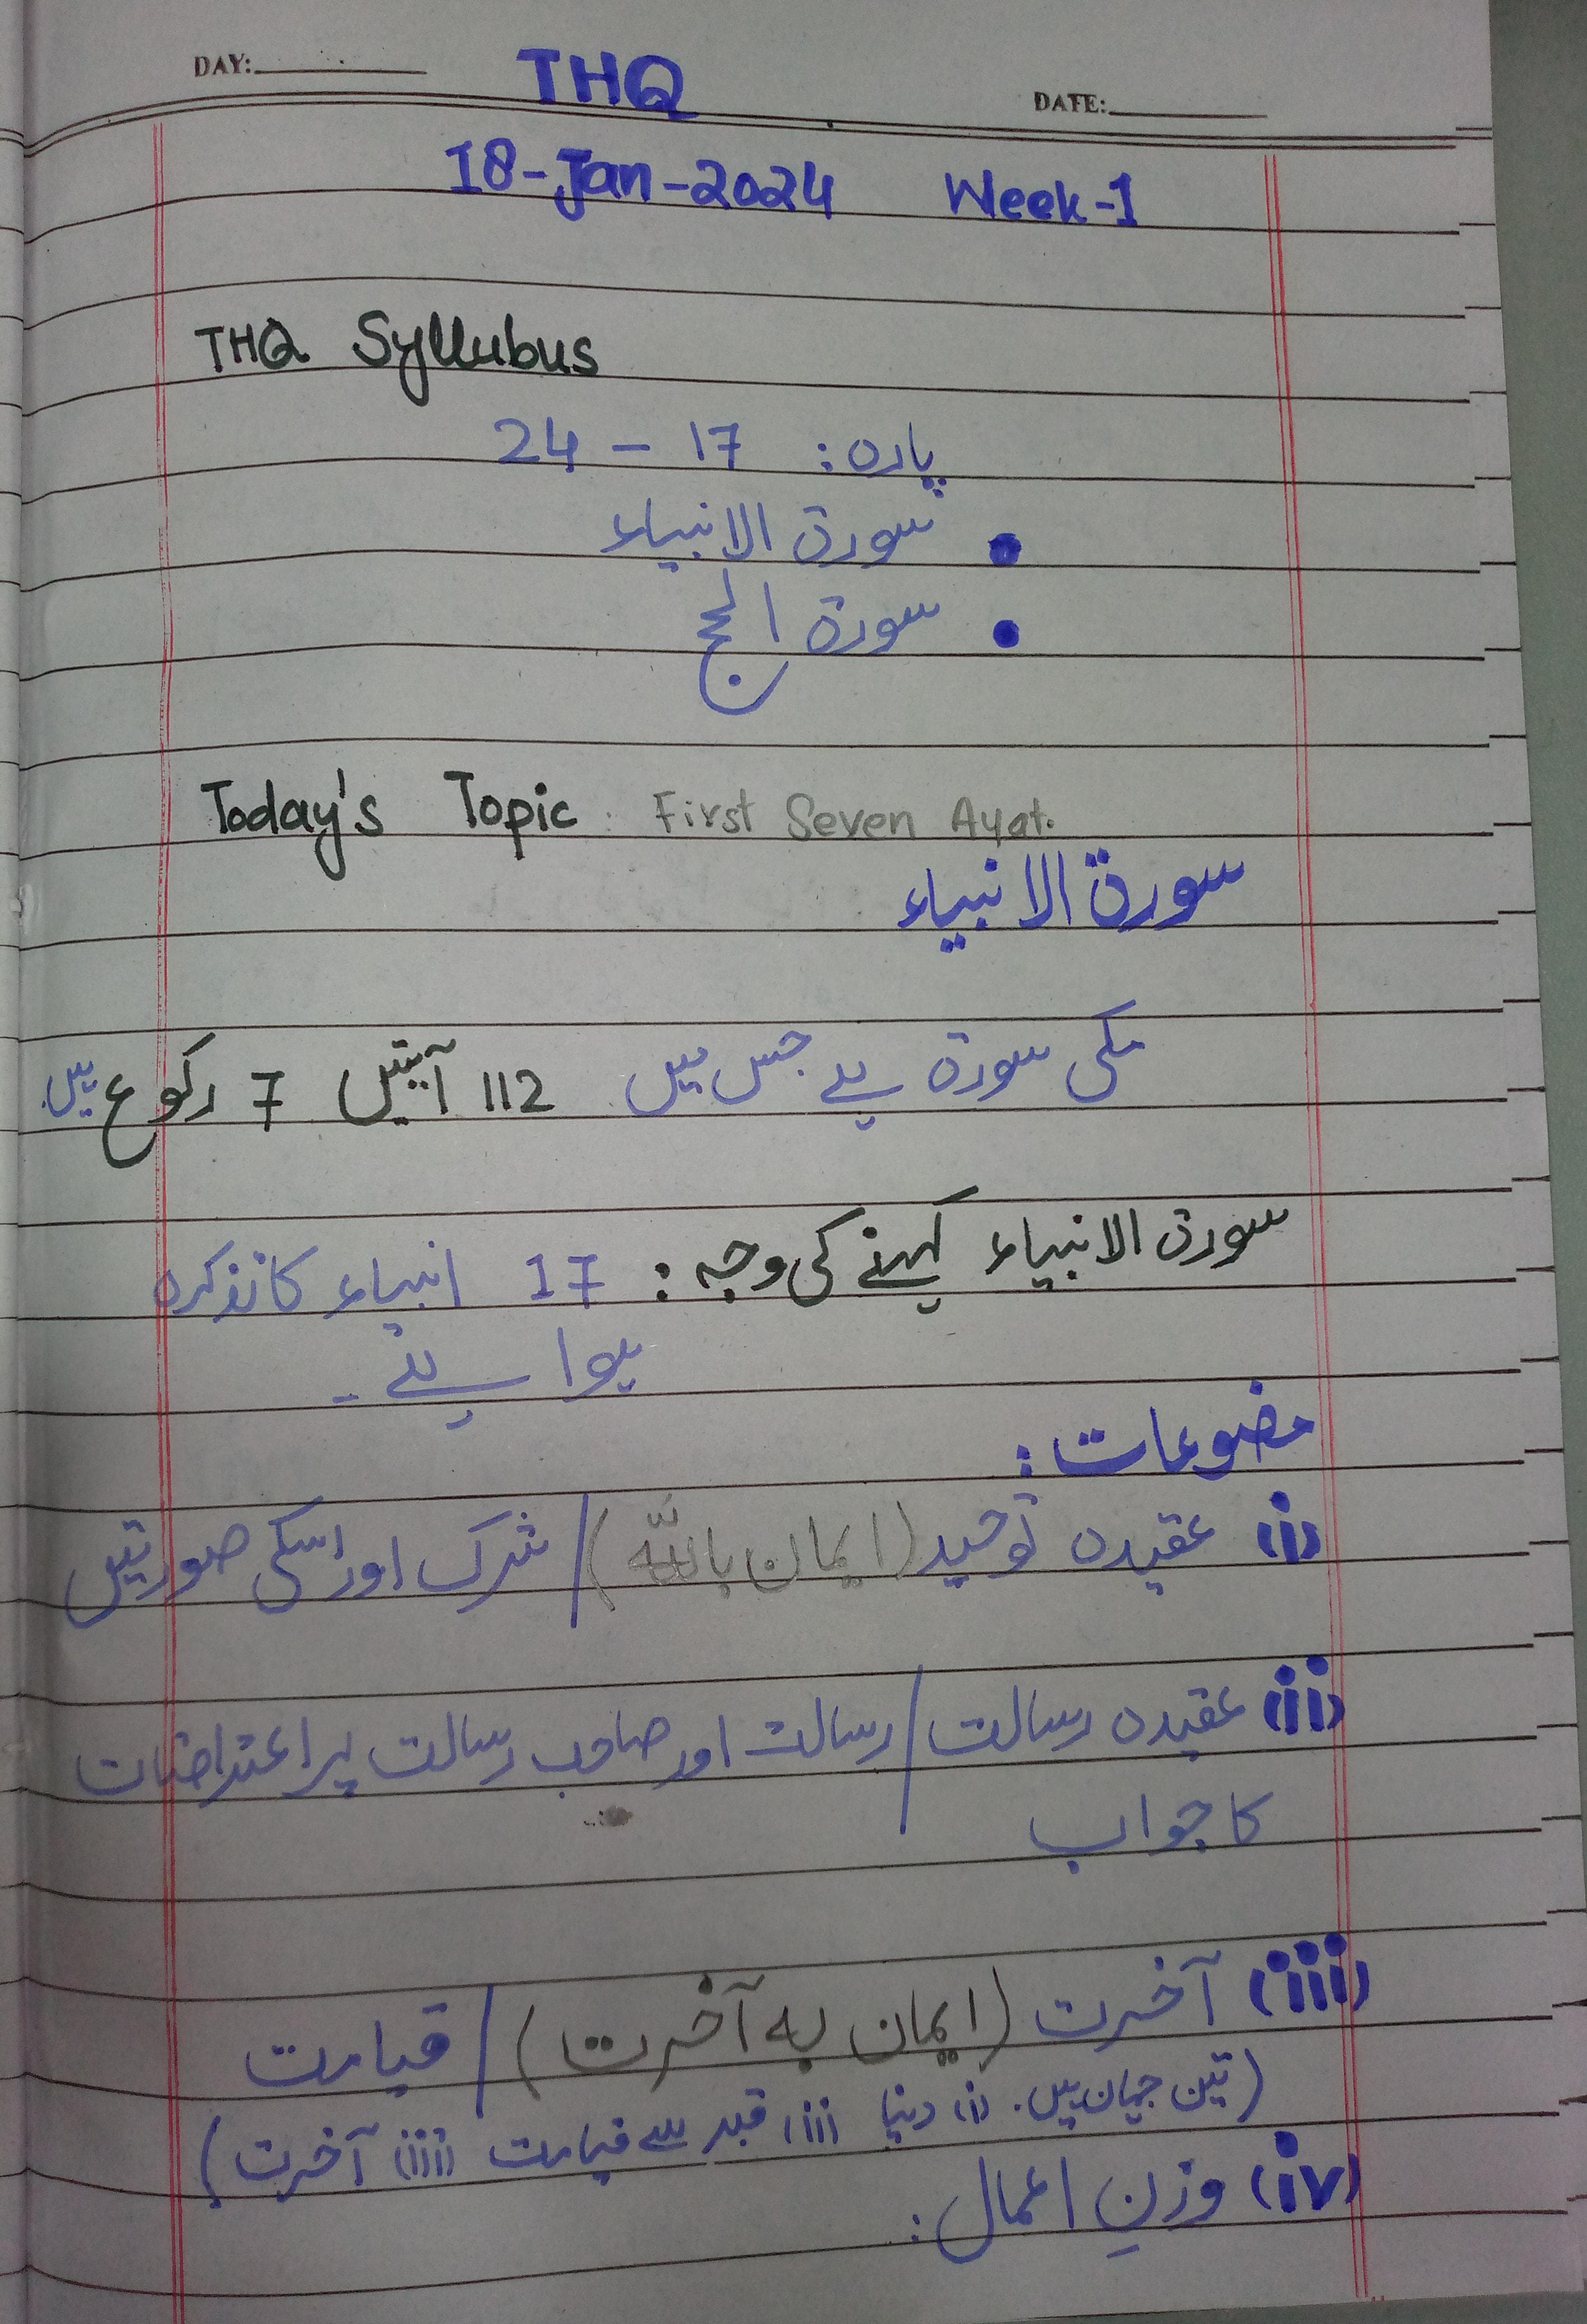 DAY: THQ DATE:
18-Jan-2024 Week-1
THQ Syllubus
پارہ: 17 - 24
• سورۃ الانبیاء
• سورۃ الحج
Today's Topic: First Seven Ayat.
سورۃ الانبیاء
مکی سورۃ ہے جس میں 112 آیتیں 7 رکوع ہیں.
سورۃ الانبیاء کہنے کی وجہ: 17 انبیاء کا تذکرہ
ہوا ہے۔
مضوعات:
(i) عقیدہ توحید (ایمان باللّٰہ) / شرک اور اسکی صورتیں
(ii) عقیدہ رسالت / رسالت اور صاحب رسالت پر اعتراضات
کا جواب
(iii) آخرت (ایمان بہ آخرت) / قیامت
(تین جہان ہیں. (i) دنیا (ii) قبر سے قیامت (iii) آخرت)
(iv) وزنِ اعمال: